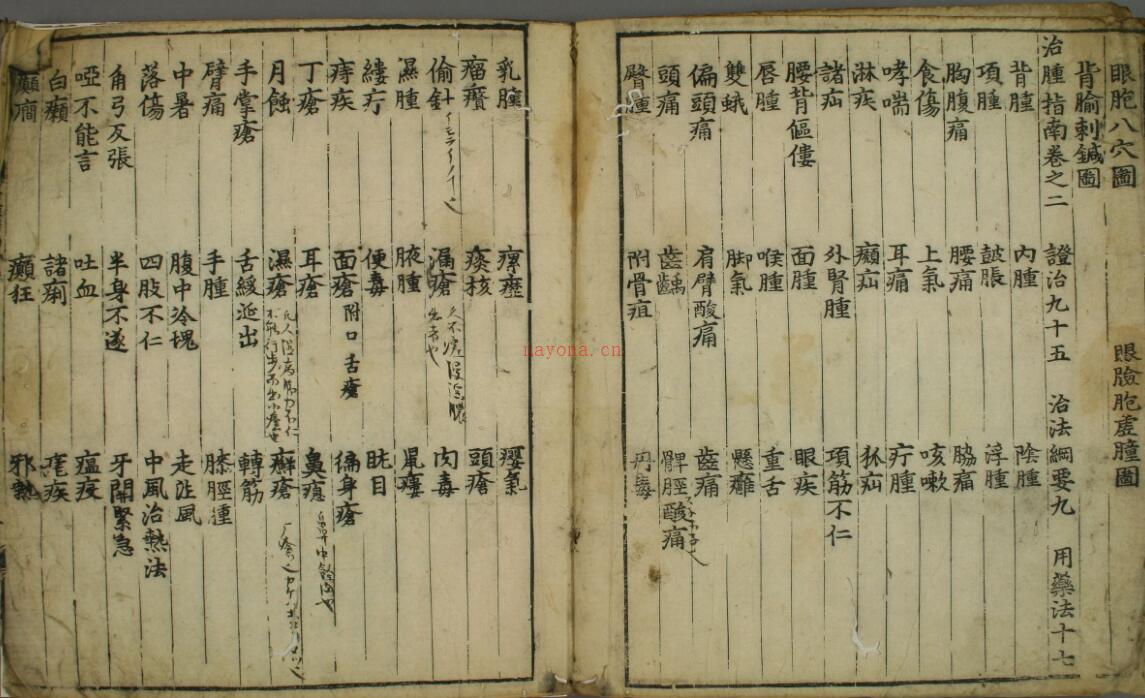 眼胞八穴圖 眼臉胞虛腫圖
背腧刺鍼圖
治腫指南卷之二 證治九十五 治法綱要九 用藥法十七
背腫 內腫 陰腫
項腫 皷脹 浮腫
胸腹痛 腰痛 脇痛
食傷 上氣 咳嗽
哮喘 耳痛 疔腫
淋疾 㿗疝 狐疝
諸疝 外腎腫 項筋不仁
腰背傴僂 面腫 眼疾
唇腫 喉腫 重舌
雙蛾 脚氣 懸癰
偏頭痛 肩臂酸痛 齒痛
頭痛 齒齲 髀脛酸痛
臀腫 附骨疽 丹毒
乳腫 瘰癧 癭氣
瘤贅 痰核 頭瘡
偷針 漏瘡 肉毒
濕腫 腋腫 鼠瘻
縷疔 便毒 眈目
痔疾 面瘡 附口舌瘡 徧身瘡
丁瘡 耳瘡 鼻瘜
月蝕 濕瘡 癬瘡
手掌瘡 舌緩涎出 轉筋
臂痛 手腫 膝脛腫
中暑 腹中冷塊 走注風
落傷 四肢不仁 中風治熱法
角弓反張 半身不遂 牙關緊急
啞不能言 吐血 瘟疫
白癩 諸痢 瘧疾
癲癇 癲狂 邪熱
nayona.cn